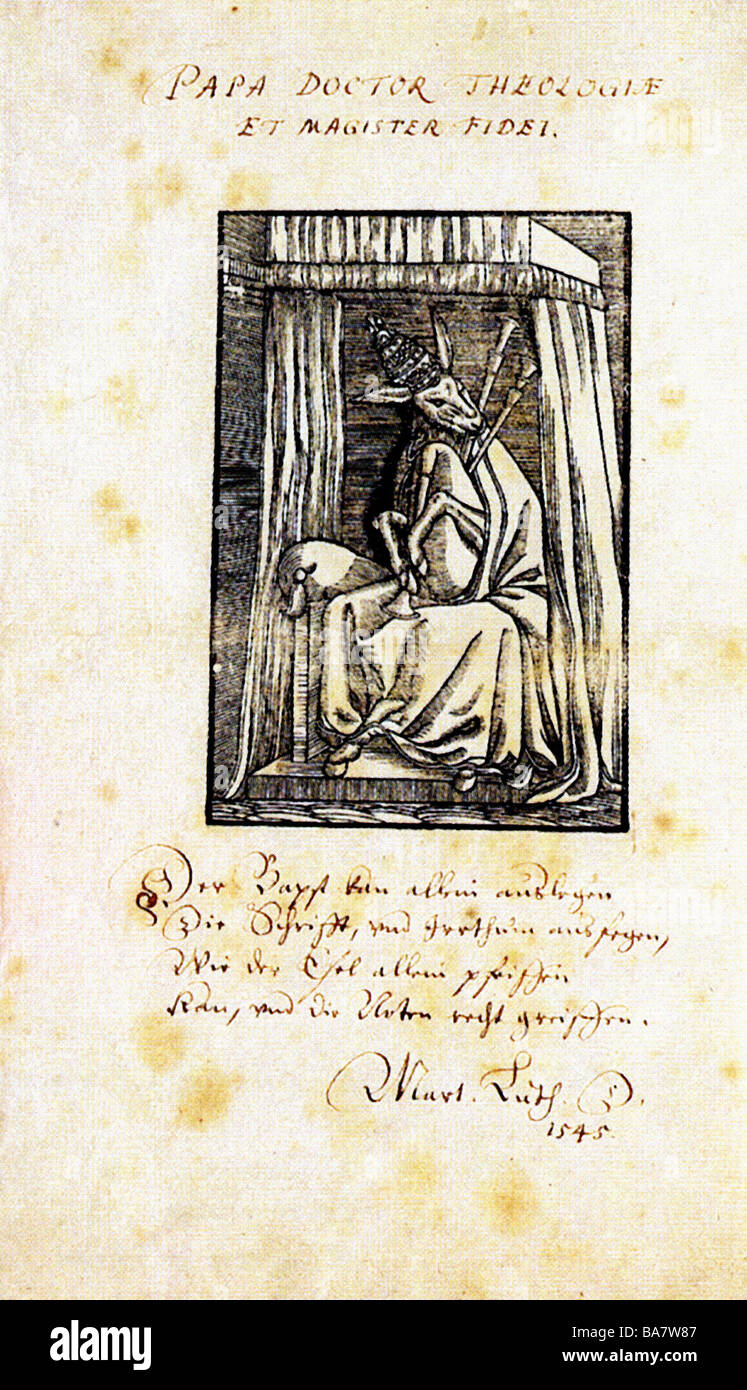 PAPA DOCTOR THEOLOGIÆ
ET MAGISTER FIDEI.
Der Bapst kan allein auslegen
Die Schrifft, vnd Irethum ausfegen,
Wie der Esel allein pfeiffen
Kan, vnd die Noten recht greiffen.
Mart. Luth. D.
1545.
alamy
Image ID: BA7W87
www.alamy.com